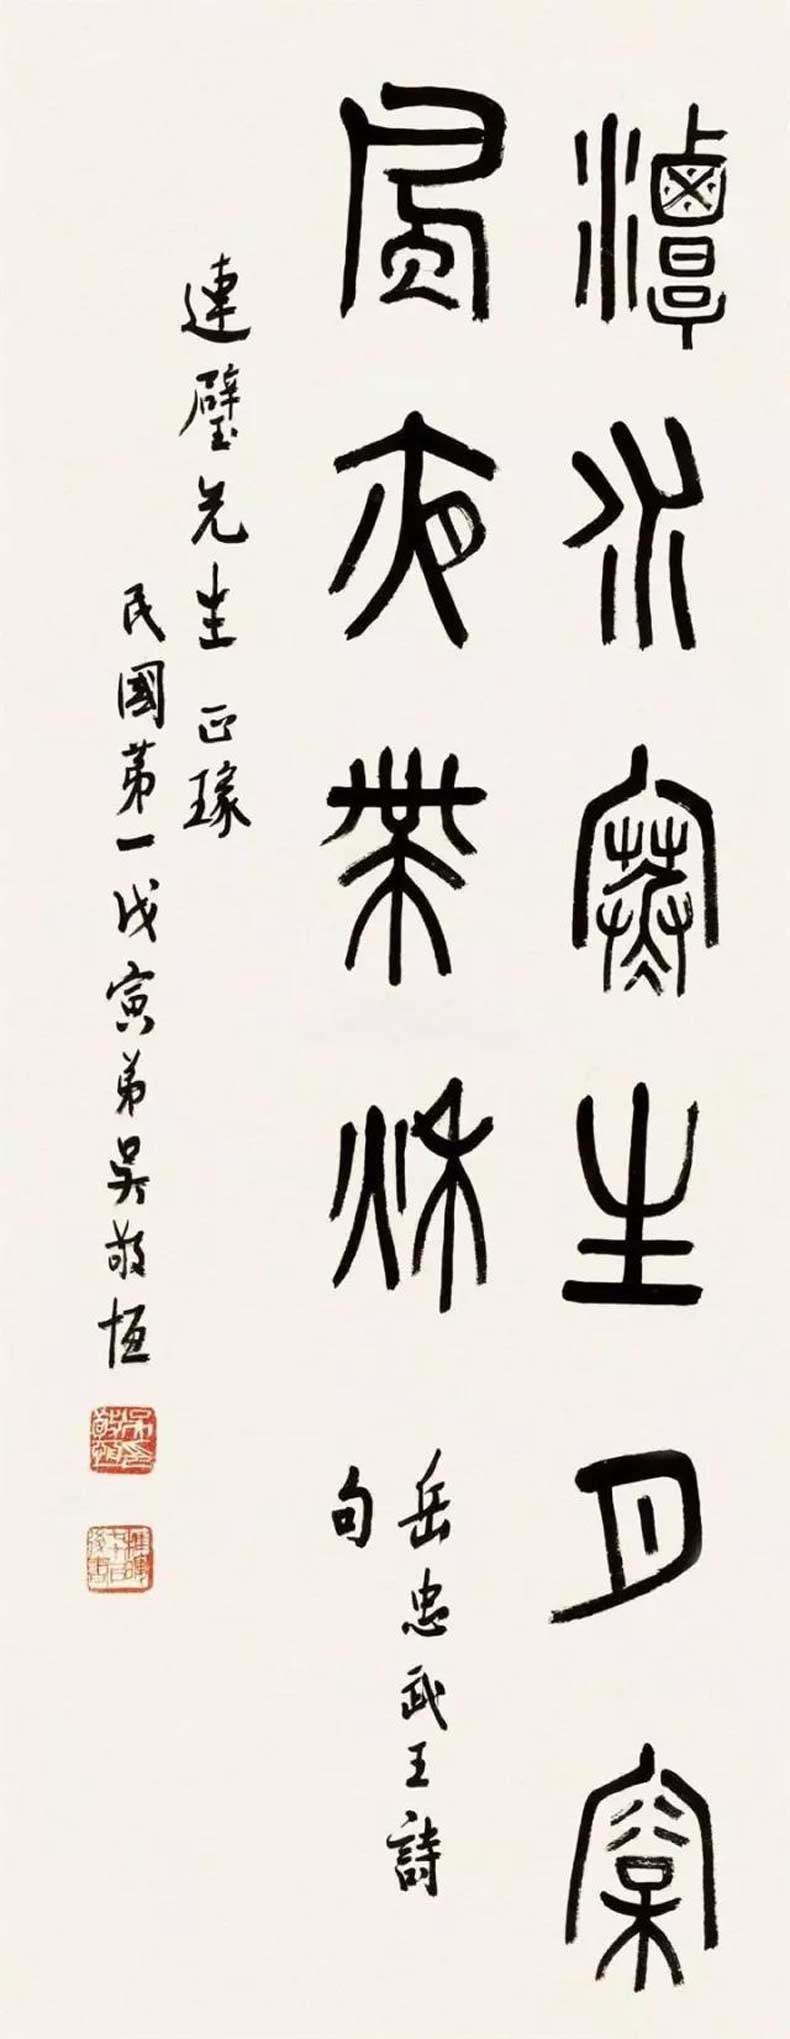 潭水寒生月松
風夜帶秋
岳忠武王詩
句
連璧先生 正瑑
民國第一戊寅弟吳敬恒